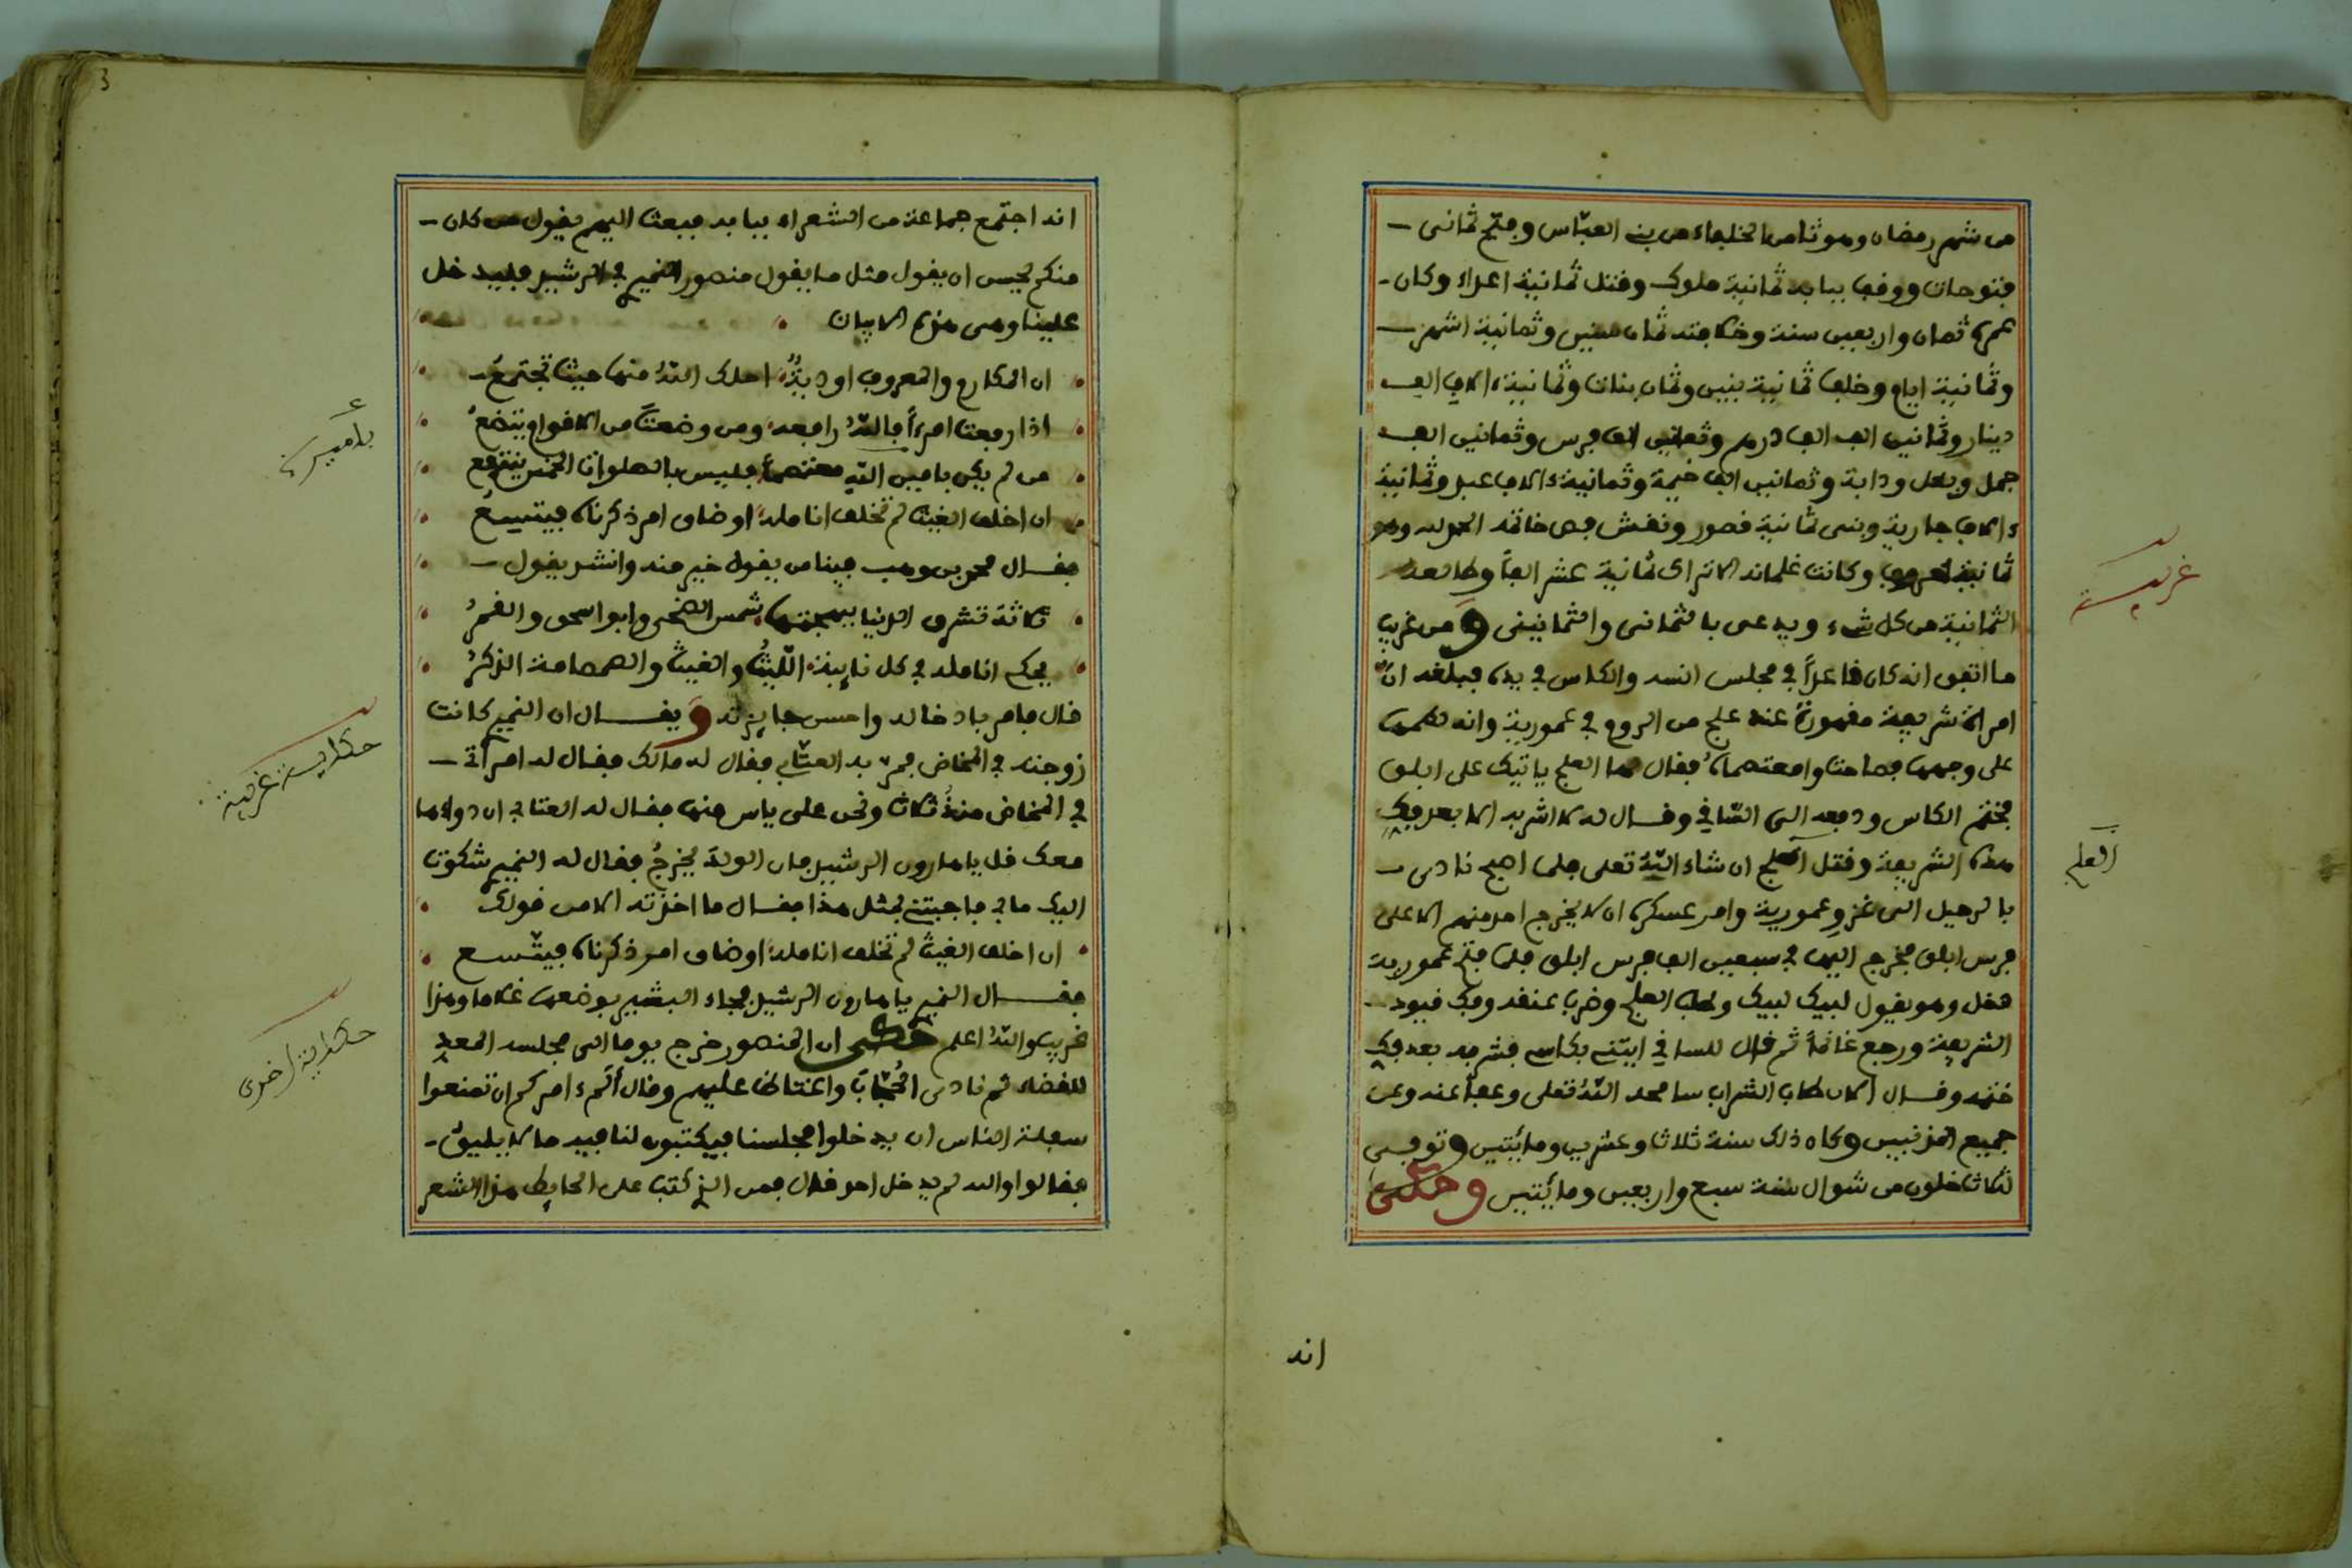 من شهر رمضان وهو ثامن الخلفاء من بني العبّاس وفتح ثماني
فتوحات ووقف ببابه ثمانية ملوك وقتل ثمانية اعداء وكان
عمره ثمان واربعين سنة وخلافته ثمان سنين وثمانية اشهر
وثمانية ايام وخلف ثمانية بنين وثمان بنات وثمانية ءالاف الف
دينار وثمانين الف الف درهم وثمانين الف فرس وثمانين الف
جمل وبغل ودابة وثمانين الف خيمة وثمانية ءالاف عبد وثمانية
ءالاف جارية وبنى ثمانية قصور ونقش فص خاتمه الحمد لله وهو
ثمانية احرف وكانت غلمانه الاتراك ثمانية عشر الفاً وطالعه
الثمانية من كل شيء ويدعى بالثماني والثمانيني ومن غريب
ما اتفق انه كان قاعداً في مجلس انسه والكاس في يده فبلغه انّ
امراة شريفة مقهورة عند علج من الروم في عمورية وانه لطمها
على وجهها فصاحت وامعتصماه فقال لها العلج ياتيك على ابلق
فختم الكاس ودفعه الى السّاقي وقال له لا اشربه الا بعد فك
هذه الشريفة وقتل العلج ان شاء اللّه تعلى فلما اصبح نادى
بالرحيل الى غزو عمورية وامر عسكره ان لا يخرج احد منهم الا على
فرس ابلق فخرج اليها في سبعين الف فرس ابلق فلما فتح عمورية
دخل وهو يقول لبيك لبيك وطلب العلج وضرب عنقه وفك قيود
الشريفة ورجع غانماً ثم قال للساقي ايتني بكاسي فشربه بعد فك
ختمه وقال الان طاب الشراب سامحه اللّه تعلى وعفا عنه وعن
جميع المذنبين وكان ذلك سنة ثلاثا وعشرين ومايتين وتوفي
لثلاث خلون من شوال سنة سبع واربعين ومايتين وحكي
غريبة
العلج
انه
3
انه اجتمع جماعة من الشعراء ببابه فبعث اليهم يقول من كان
منكم يحسن ان يقول مثل ما يقول منصور النميري في الرشيد فليدخل
علينا وهي هذه الابيات
ان المكارم والمعروف اوديةٌ احلك اللّهُ منها حيث تجتمعُ
اذا رفعت امرءاً فاللّهُ رافعه ومن وضعت من الاقوام يتضعُ
من لم يكن بامين اللّه معتصماً فليس بالصلوات الخمس ينتفع
ان اخلف الغيث لم تخلف انامله او ضاق امر ذكرناه فيتسعُ
فقال محمد بن وهب فينا من يقول خير منه وانشد يقول
ثلاثة تشرق الدنيا ببهجتها شمس الضحى وابو اسحق والقمرُ
يحكي انامله في كل نايبة اللّيثُ والغيث والصمصامة الذكرُ
قال فامر بادخاله واحسن جايزته ويقال ان النميري كانت
زوجته في المخاض فمرّ به العتّابي فقال له مالك فقال له امرأتي
في المخاض منذُ ثلاث ونحن على ياس منها فقال له العتابي ان دواءها
معك قل يا هارون الرشيد فان الولد يخرجُ فقال له النميري شكوت
اليك ما بي فاجبتني بمثل هذا فقال ما اخذته الا من قولك
ان اخلف الغيث لم تخلف انامله او ضاق امر ذكرناه فيتّسع
فقال النميري يا هارون الرشيد فجاء البشير بوضعها غلاما وهذا
غريب واللّهُ اعلم حكي ان المنصور خرج يوما الى مجلسه المعد
للقضاء ثم نادى الحُجّابَ واغتاظ عليهم وقال ألم ءامركم ان تمنعوا
سفلة الناس ان يدخلوا مجلسنا فيكتبون لنا فيه ما لا يليق
فقالوا والله لم يدخل احد قال فمن الذي كتب على الحايط هذا الشعر
بأمين
حكاية غريبة
حكاية اخرى